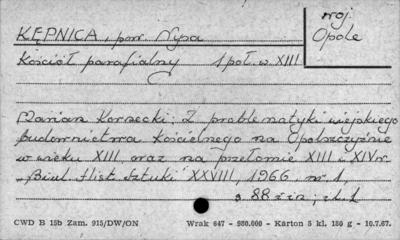 KĘPNICA, pow. Nysa
woj.
Opole
Kościół parafialny 1 poł. w. XIII
Marian Kornecki: Z problematyki wiejskiego
budownictwa kościelnego na Opolszczyźnie
w wieku XIII oraz na przełomie XIII i XIV w.
"Biul. Hist. Sztuki" XXVIII, 1966, nr. 1,
s. 88
CWD B 15b Zam. 915/DW/ON Wrak 647 - 980.000 - Karton 5 kl. 180 g - 10.7.67.